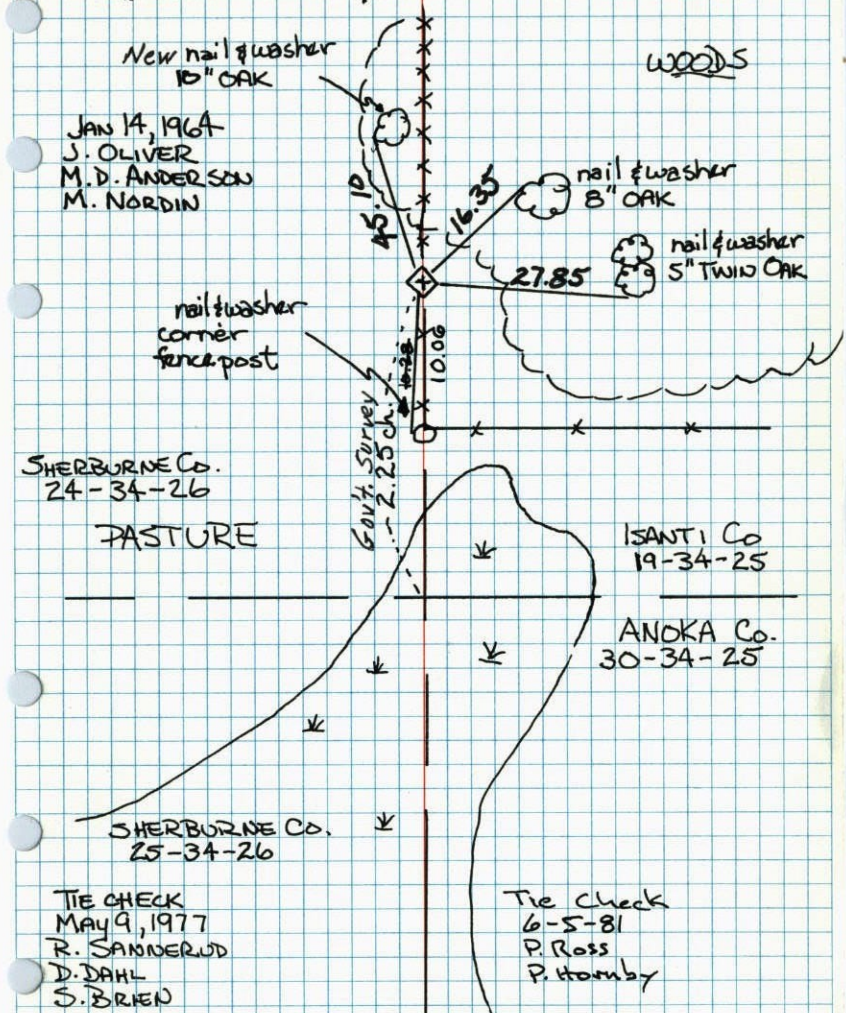 New nail & washer
10" OAK
WOODS
JAN 14, 1964
J. OLIVER
M.D. ANDERSON
M. NORDIN
45.10
16.35
nail & washer
8" OAK
27.85
nail & washer
5" TWIN OAK
nail & washer
corner
fence post
10.28
10.06
Gov't. Survey
2.25 ch.
SHERBURNE CO.
24-34-26
PASTURE
ISANTI CO
19-34-25
ANOKA CO.
30-34-25
SHERBURNE CO.
25-34-26
TIE CHECK
MAY 9, 1977
R. SANNERUD
D. DAHL
S. BRIEN
Tie Check
6-5-81
P. Ross
P. Hornby